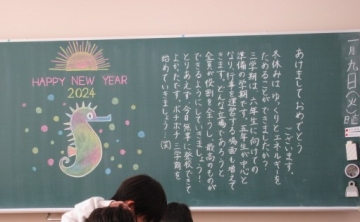 HAPPY NEW YEAR
2024
一月九日(火)晴
あけましておめでとう
ございます。
冬休みはゆっくりとエネルギーを
ためることができましたか?
三学期は、六年生に向けての
準備の学期です。五年生が中心と
なり、行事を運営する場面も増えて
きます。どんな立場であろうと
全員が役割を全うし、最高のものが
できるようにしていきましょう!
とりあえず、今日無事に登校できて
よかったです。ボチボチ三学期を
始めていきましょう!(笑)